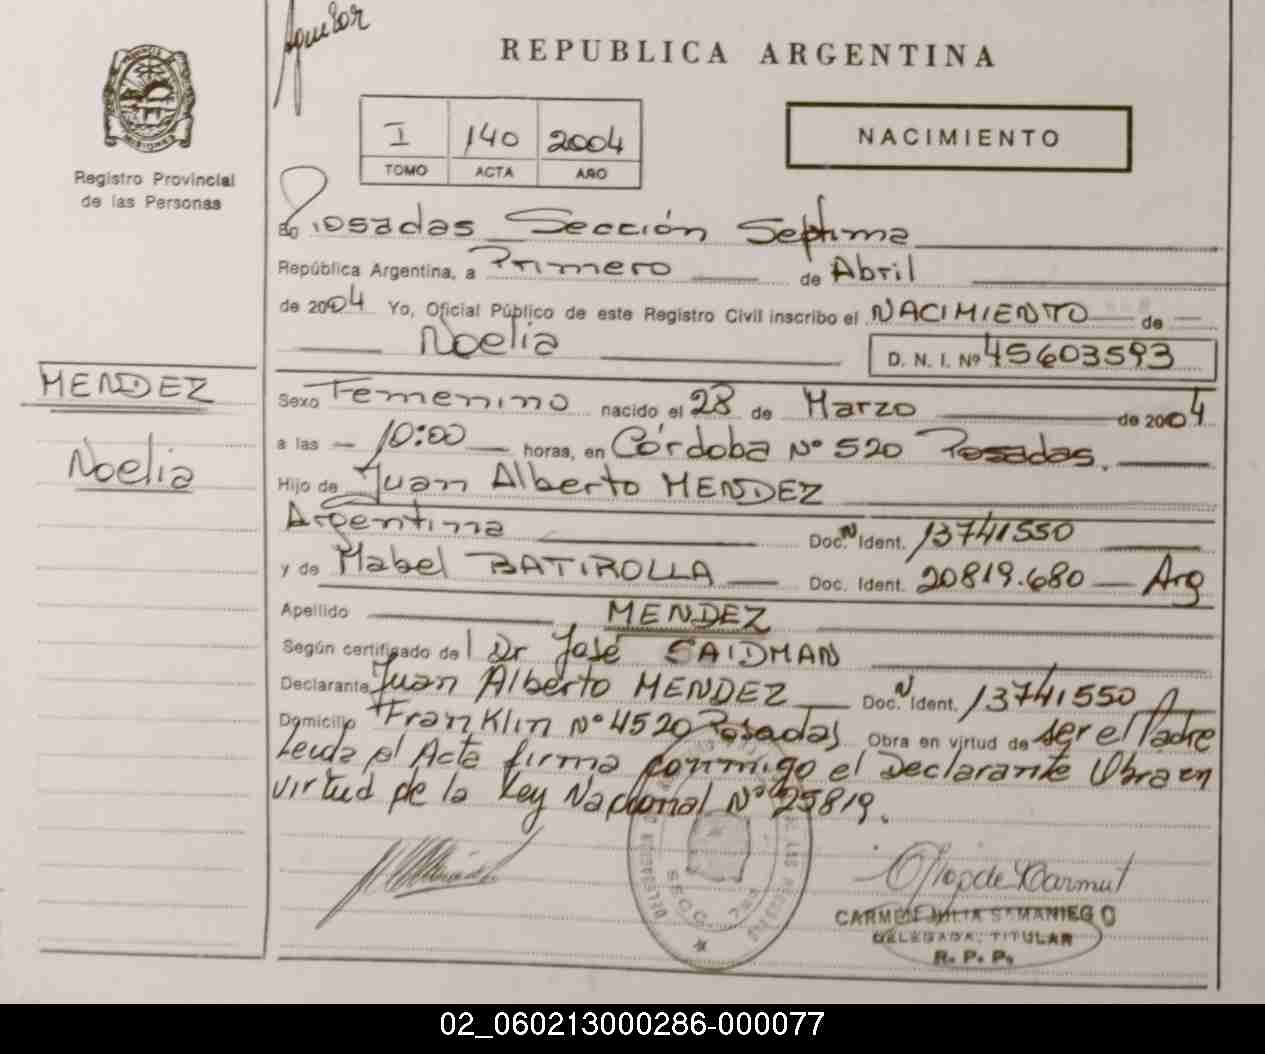 REPUBLICA ARGENTINA
MISIONES
Registro Provincial
de las Personas
I 140 2004
TOMO ACTA AÑO
NACIMIENTO
En Posadas Sección Septima
República Argentina, a Primero de Abril
de 2004 Yo, Oficial Público de este Registro Civil inscribo el NACIMIENTO de
Noelia D. N. I. Nº 45603593
MENDEZ
Noelia
Sexo Femenino nacido el 28 de Marzo de 2004
a las 10:00 horas, en Córdoba Nº 520 Posadas.
Hijo de Juan Alberto MENDEZ
Argentina Doc. N Ident. 13741550
y de Mabel BATIROLLA Doc. Ident. 20819.680 Arg
Apellido MENDEZ
Según certificado del Dr José SAIDMAN
Declarante Juan Alberto MENDEZ Doc. N Ident. 13741550
Domicilio Franklin Nº 4520 Posadas Obra en virtud de ser el Padre
Leida el Acta firma conmigo el Declarante Obra en
virtud de la Ley Nacional Nº 25819.
CARMEN JULIA SAMANIEGO
DELEGADA TITULAR
R. P. P.
02_060213000286-000077